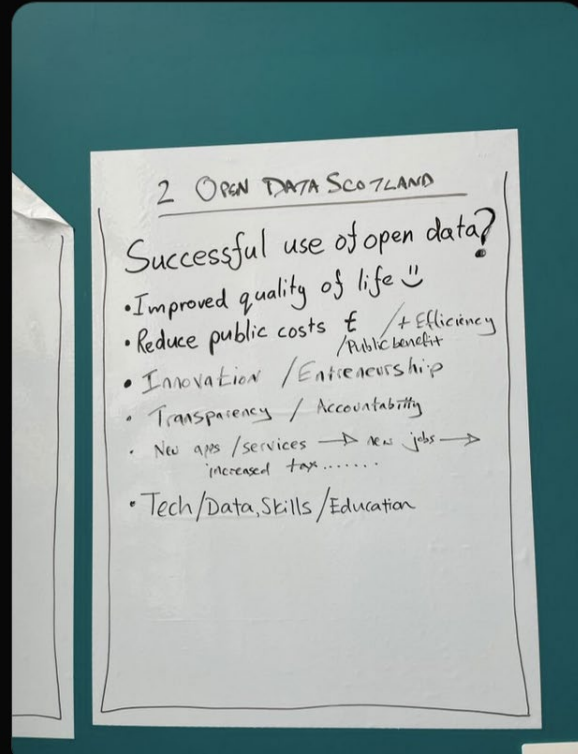 2 OPEN DATA SCOTLAND
Successful use of open data?
• Improved quality of life
• Reduce public costs £ / + Efficiency
/Public benefit
• Innovation / Entreneurship
• Transparency / Accountability
• New apps / services → new jobs →
increased tax.......
• Tech/Data, Skills / Education